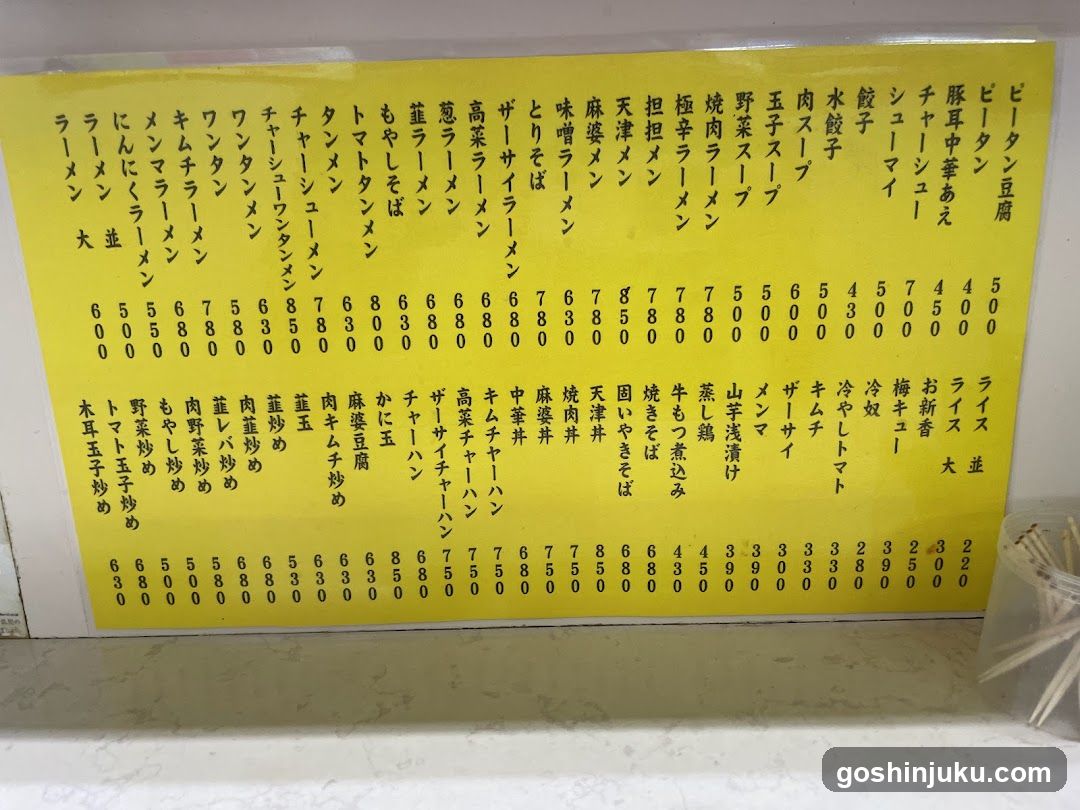 ピータン豆腐 500
ピータン 400
豚耳中華あえ 450
チャーシュー 700
シューマイ 500
餃子 430
水餃子 500
肉スープ 600
玉子スープ 500
野菜スープ 500
焼肉ラーメン 780
極辛ラーメン 780
担担メン 780
天津メン 850
麻婆メン 780
味噌ラーメン 630
とりそば 780
ザーサイラーメン 680
高菜ラーメン 680
葱ラーメン 680
韮ラーメン 680
もやしそば 630
トマトタンメン 800
タンメン 630
チャーシューメン 780
チャーシューワンタンメン 850
ワンタンメン 630
ワンタン 580
キムチラーメン 780
メンマラーメン 680
にんにくラーメン 550
ラーメン 並 500
ラーメン 大 600
ライス 並 220
ライス 大 300
お新香 250
梅キュー 390
冷奴 280
冷やしトマト 330
キムチ 330
ザーサイ 300
メンマ 390
山芋浅漬け 390
蒸し鶏 450
牛もつ煮込み 430
焼きそば 680
固いやきそば 680
天津丼 850
焼肉丼 750
麻婆丼 750
中華丼 680
キムチャーハン 750
高菜チャーハン 750
ザーサイチャーハン 750
チャーハン 680
かに玉 850
麻婆豆腐 630
肉キムチ炒め 630
韮玉 630
韮炒め 530
肉韮炒め 680
韮レバ炒め 680
肉野菜炒め 580
もやし炒め 500
野菜炒め 500
トマト玉子炒め 680
木耳玉子炒め 630
goshinjuku.com